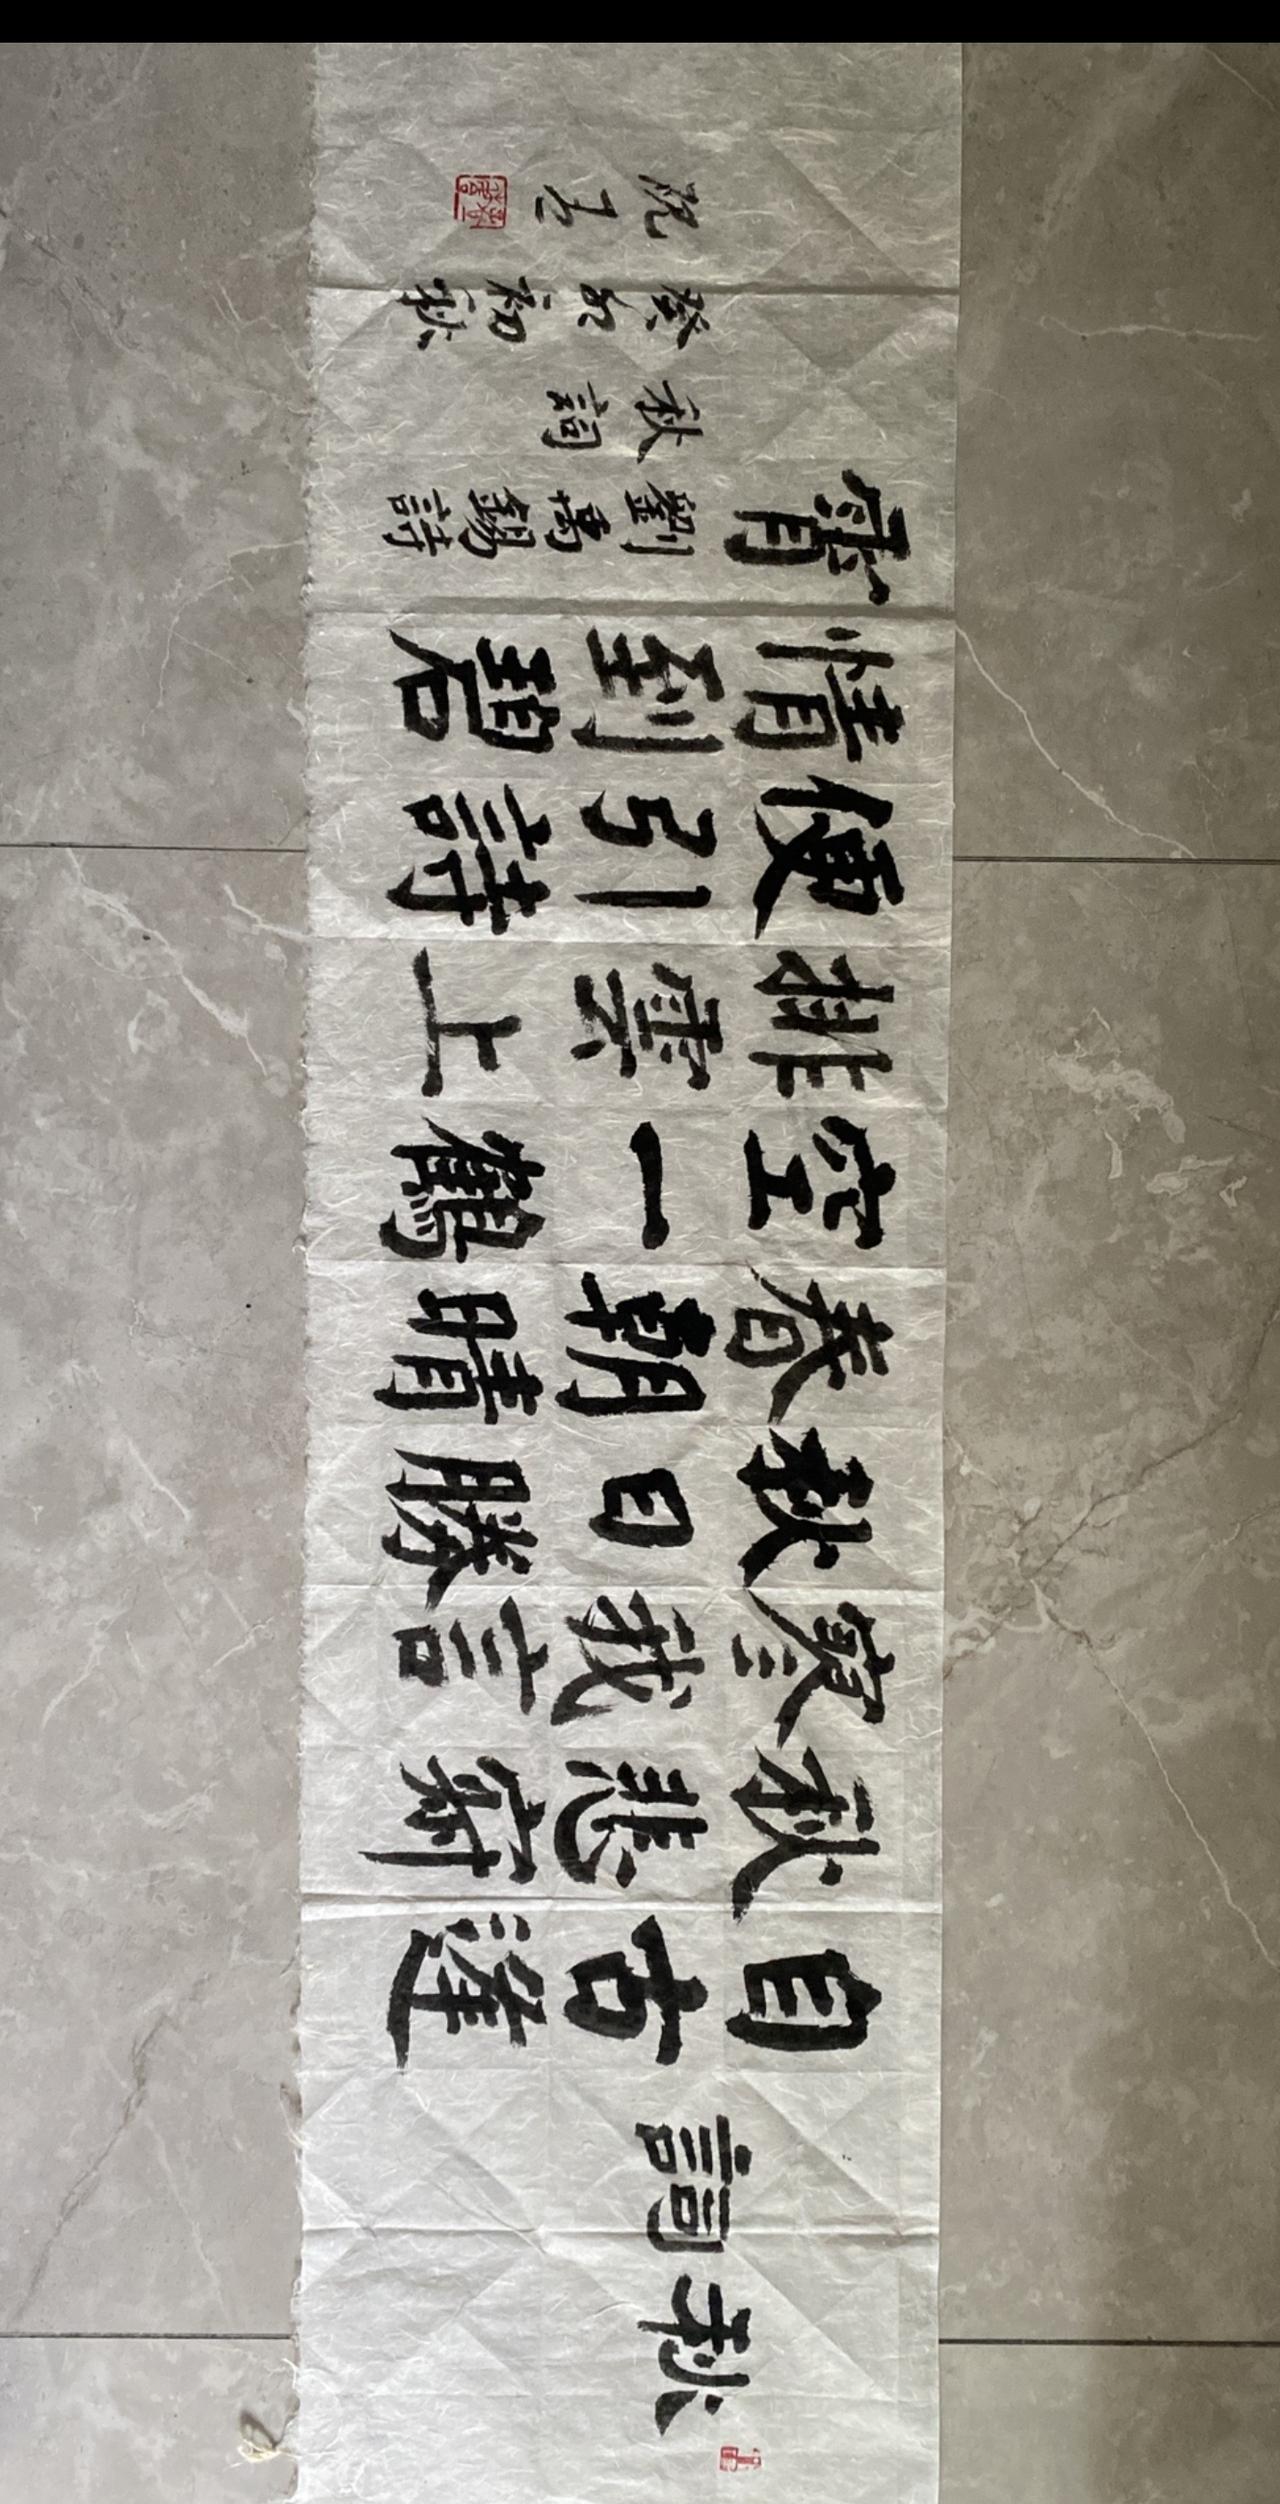 秋詞
自古逢
秋悲寂
寥我言
秋日勝
春朝晴
空一鶴
排雲上
便引詩
情到碧
霄
劉禹錫詩
秋詞
癸卯初秋
沈